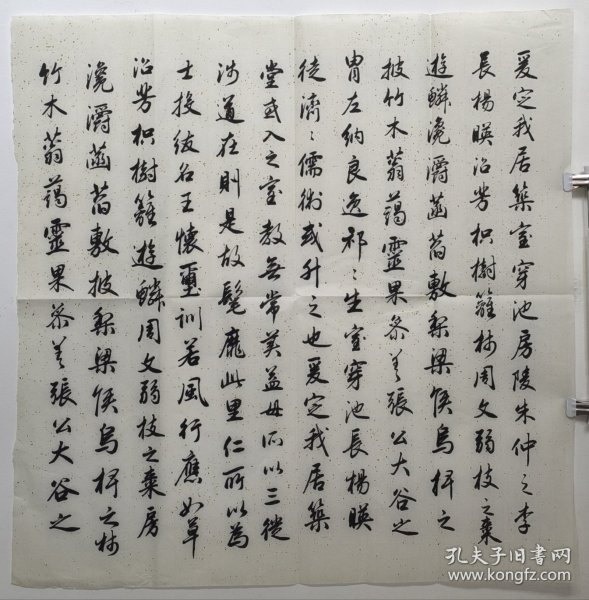 爰定我居築室穿池房陵朱仲之李
長楊暎沼芳枳樹籬梼周文弱枝之棗
遊鱗瀺灂菡萏敷梨梁侯烏椑之
披竹木蓊藹靈果参差張公大谷之
胄左納良逸祁々生室穿池長楊暎
徒濟々儒術或升之也爰定我居築
堂或入之室教無常美益母所以三徙
渉道在則是故髦靡此里仁所以為
士投紱名王懷璽訓若風行應如草
沼芳枳樹籬遊鱗周文弱枝之棗房
瀺灂菡萏敷披梨梁侯烏椑之
竹木蓊藹靈果参差張公大谷之
孔夫子旧书网
www.kongfz.com